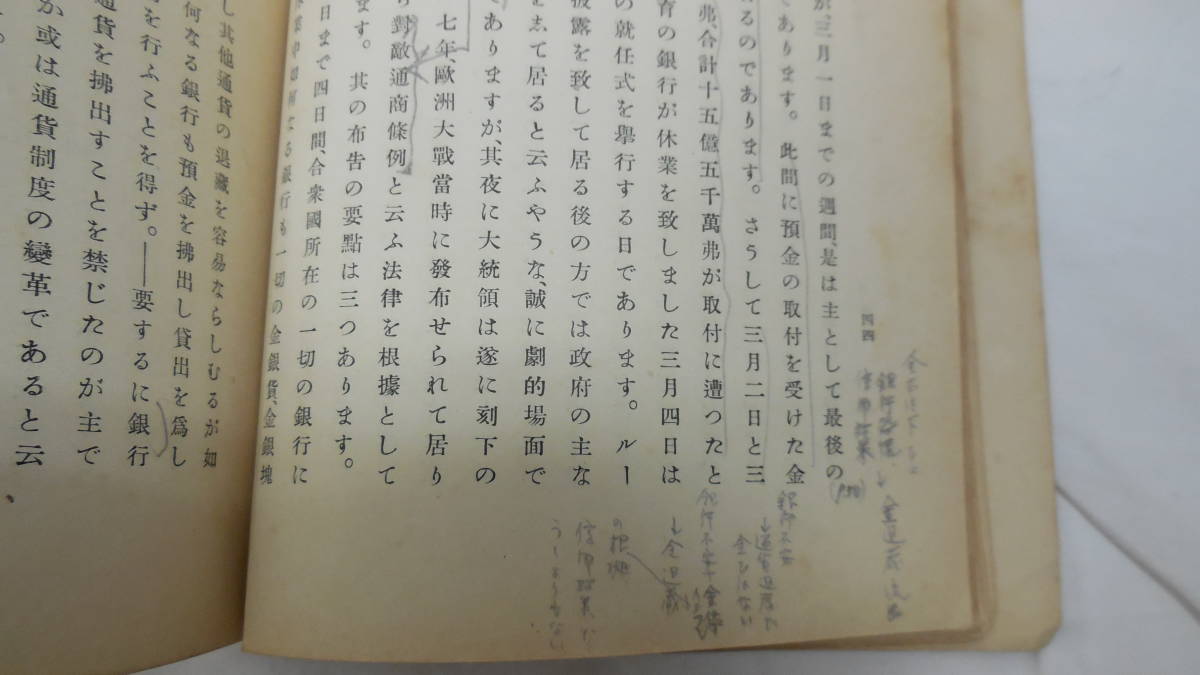 四四
が三月一日までの週間、是は主として最後の
であります。此間に預金の取付を受けた金
るのであります。さうして三月二日と三
弗、合計十五億五千萬弗が取付に遭つたと
育の銀行が休業を致しました三月四日は
の就任式を擧行する日であります。ルー
披露を致して居る後の方では政府の主な
をゑて居ると云ふやうな、誠に劇的場面で
でありますが、其夜に大統領は遂に刻下の
七年、歐洲大戰當時に發布せられて居り
ら對敵通商條例と云ふ法律を根據として
ます。其の布告の要點は三つあります。
日まで四日間、合衆國所在の一切の銀行に
如何なる銀行も一切の金銀貨、金銀塊
し其他通貨の退藏を容易ならしむるが如
何なる銀行も預金を拂出し貸出を爲し
を行ふことを得ず。――要するに銀行
通貨を拂出すことを禁じたのが主で
か或は通貨制度の變革であると云
銀行不安
↓通貨退藏
金ではない
銀行不安
↓金退藏
の根據